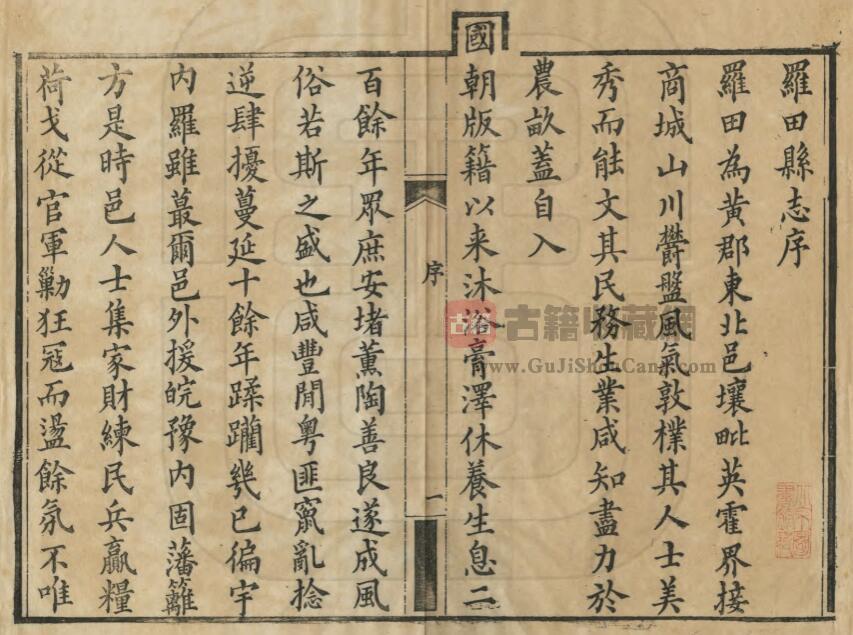 羅田縣志序
羅田為黃郡東北邑壤毗英霍界接
商城山川欝盤風氣敦樸其人士美
秀而能文其民務生業咸知盡力於
農畝蓋自入
國朝版籍以來沐浴膏澤休養生息二
序
一
百餘年眾庶安堵薰陶善良遂成風
俗若斯之盛也咸豐閒粵匪竄亂捻
逆肆擾蔓延十餘年蹂躪幾已徧宇
內羅雖蕞爾邑外援皖豫內固藩籬
方是時邑人士集家財練民兵贏糧
荷戈從官軍勦狂寇而盪餘氛不唯
古籍 古籍收藏网
www.GuJiShouCang.com